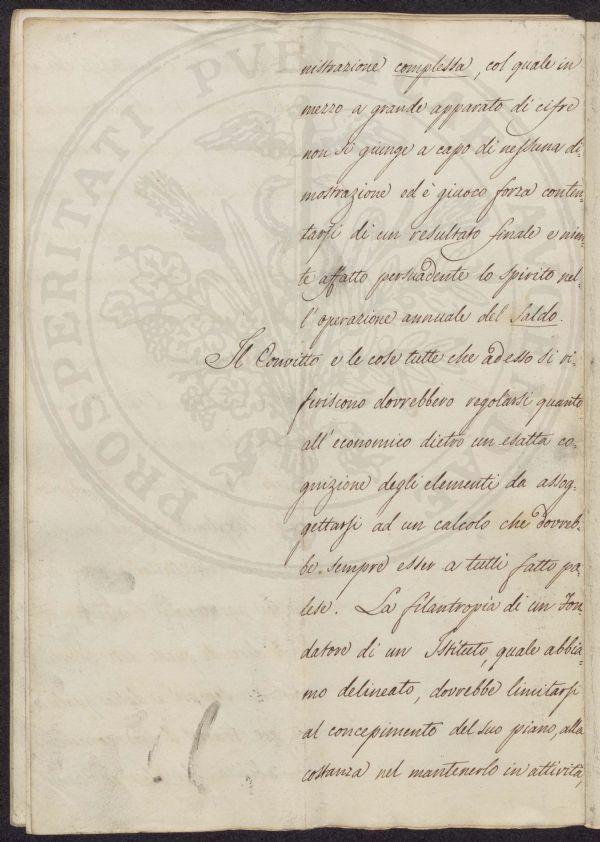 nistrazione complessa, col quale in
mezzo a grande apparato di cifre
non si giunge a capo di nessuna di-
mostrazione ed è giuoco forza conten-
tarsi di un resultato finale e nien-
te affatto persuadente lo spirito nel-
l'operazione annuale del Saldo.
Il Convitto e le cose tutte che ad esso si ri-
feriscono dovrebbero regolarsi quanto
all'economico dietro un esatta co-
gnizione degli elementi da assog-
gettarsi ad un calcolo che dovreb-
be sempre esser a tutti fatto pa-
lese. La filantropia di un Fon-
datore di un Istituto, quale abbia-
mo delineato, dovrebbe limitarsi
al concepimento del suo piano, alla
costanza nel mantenerlo in attività,
PROSPERITATI PVBLICAE